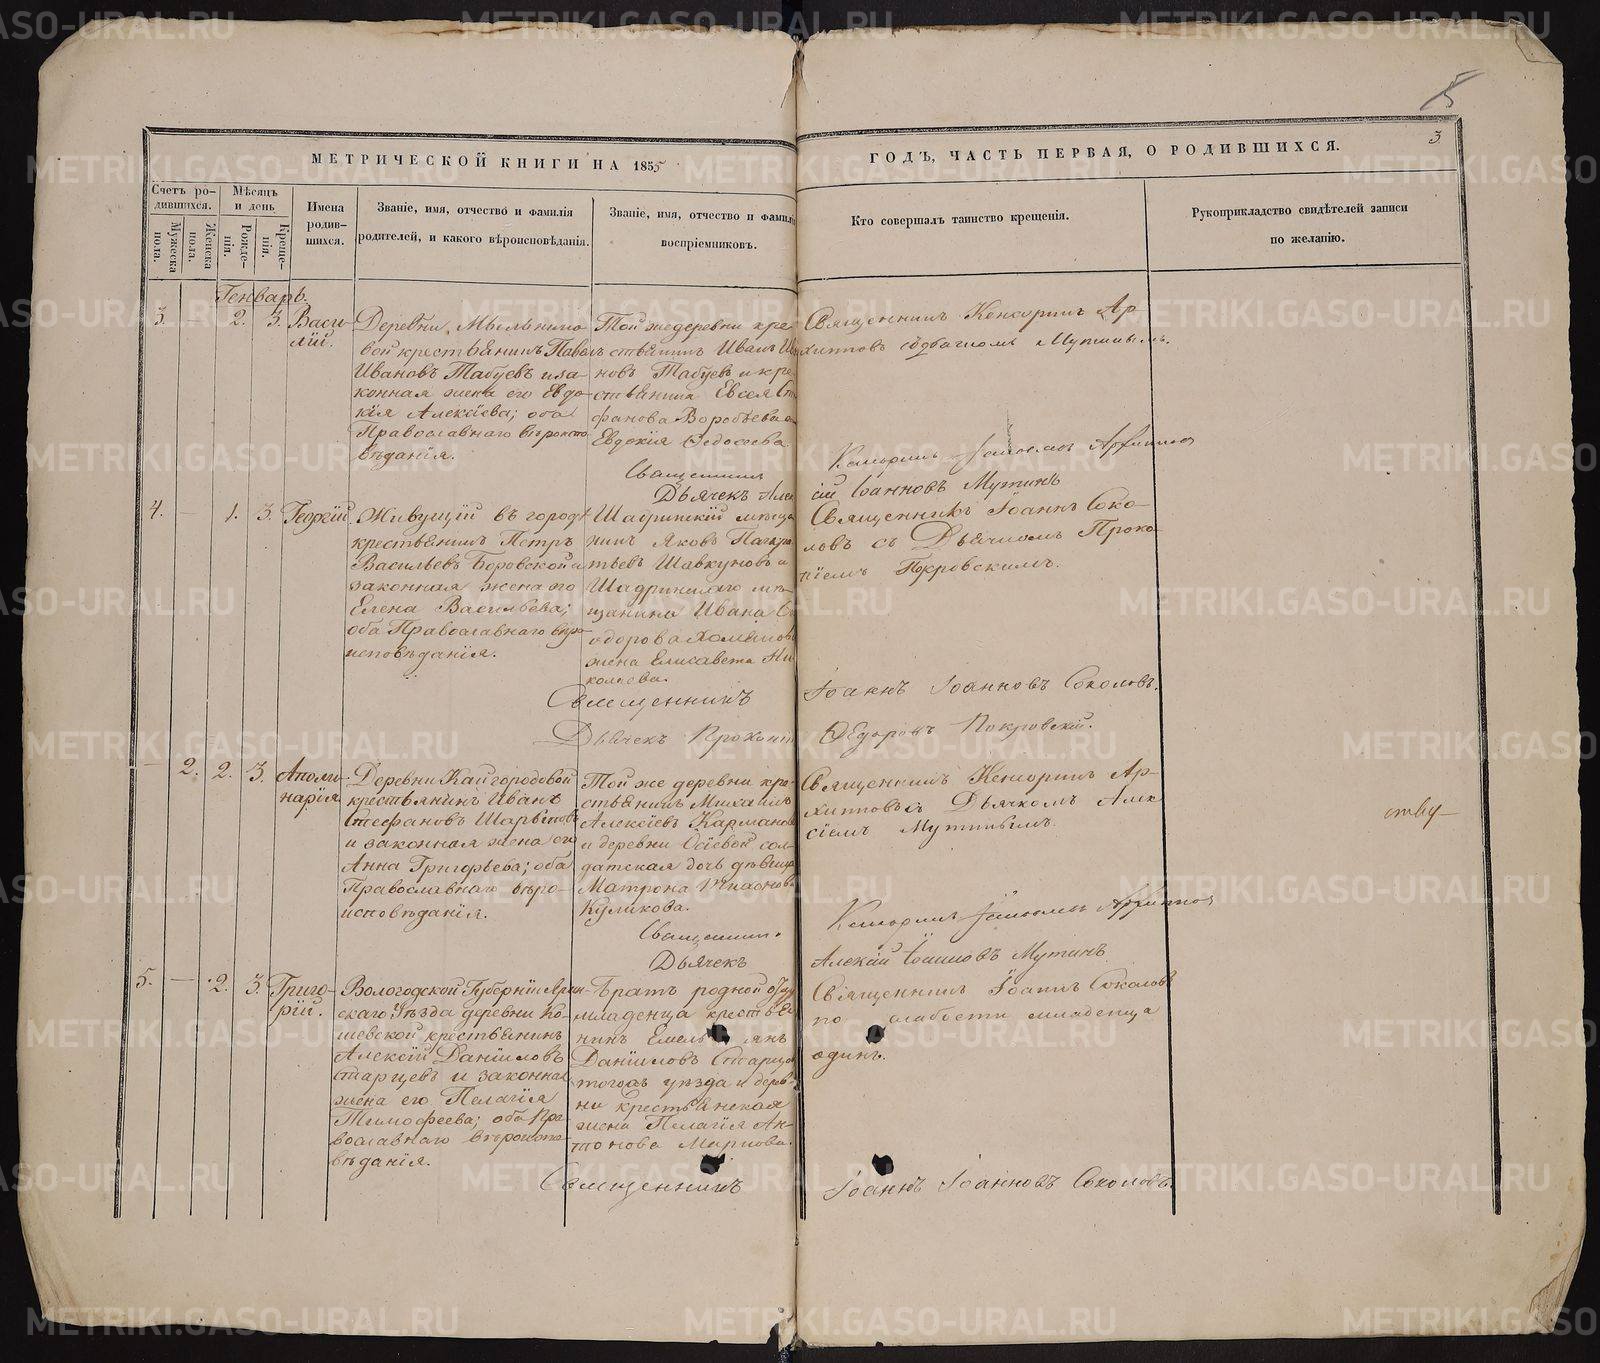 МЕТРИЧЕСКОЙ КНИГИ НА 1855
ГОДЪ, ЧАСТЬ ПЕРВАЯ, О РОДИВШИХСЯ.
3
Счетъ родившихся.
Мужеска пола.
Женска пола.
Мѣсяцъ и день
Рожденія.
Крещенія.
Имена родившихся.
Званіе, имя, отчество и фамилія
родителей, и какого вѣроисповѣданія.
Званіе, имя, отчество и фамилія
воспріемниковъ.
Кто совершалъ таинство крещенія.
Рукоприкладство свидѣтелей записи
по желанію.
Генварь.
3. — 2. 3.
Васи-
лій.
Деревни
вой крестьянинъ Павелъ
Ивановъ Табуевъ и за-
конная жена его Евдо-
кія Алексіева; оба
Православнаго вѣроиспо-
вѣданія.
Той же деревни кре-
стьянинъ Иванъ
новъ Табуевъ и кре-
стьянина Евсея Сте
фанова Воробьева
Евдокія Ѳедосеева.
Священникъ Кенсоринъ Ар-
хипповъ съ дьячкомъ Мутинымъ.
Священникъ
Дьячек Алек
сій Іоанновъ Мутинъ
4. — 1. 3.
Георгій
Живущій въ городѣ
крестьянинъ Петръ
Васильевъ Боровской и
законная жена его
Елена Васильева;
оба Православнаго вѣро-
исповѣданія.
Шадринскій мѣща
нинъ Яковъ Панкра
тьевъ Шавкуновъ и
Шадринскаго мѣ-
щанина Ивана
жена Елисавета Ни
колаева.
Священникъ Іоаннъ Соко-
ловъ съ Дьячкомъ Проко-
піемъ Покровскимъ.
Священникъ Іоаннъ Іоанновъ Соколовъ.
Дьячекъ Прокопій Ѳедоровъ Покровскій.
— 2. 2. 3.
Аполи-
нарія
Деревни Кайгородовой
крестьянинъ Иванъ
Стефановъ Шарыповъ
и законная жена его
Анна Григорьева; оба
Православнаго вѣро-
исповѣданія.
Той же деревни кре-
стьянинъ Михаилъ
Алексіевъ Кармановъ
и деревни Осіевой сол-
датская дочь дѣвица
Матрона
Куликова.
Священникъ Кенсоринъ Ар-
хипповъ съ Дьячкомъ Алек
сіемъ Мутинымъ.
Священникъ
Дьячек
Алексій Іоанновъ Мутинъ
5. — 2. 3.
Григо-
рій.
Вологодской Губерніи
скаго Уѣзда деревни Ко-
шевской крестьянинъ
Алексій Даниловъ
Старцевъ и законная
жена его Пелагія
Тимофеева; оба Пра-
вославнаго вѣроиспо-
вѣданія.
Братъ родной отцу
младенца крестья
нинъ Емельянъ
Даниловъ Старцев
тогожъ уѣзда и дерев-
ни крестьянская
жена Пелагія Ан-
тонова Маркова.
Священникъ Іоаннъ Соколовъ
по слабости младенца
одинъ.
Священникъ Іоаннъ Іоанновъ Соколовъ
METRIKI.GASO-URAL.RU